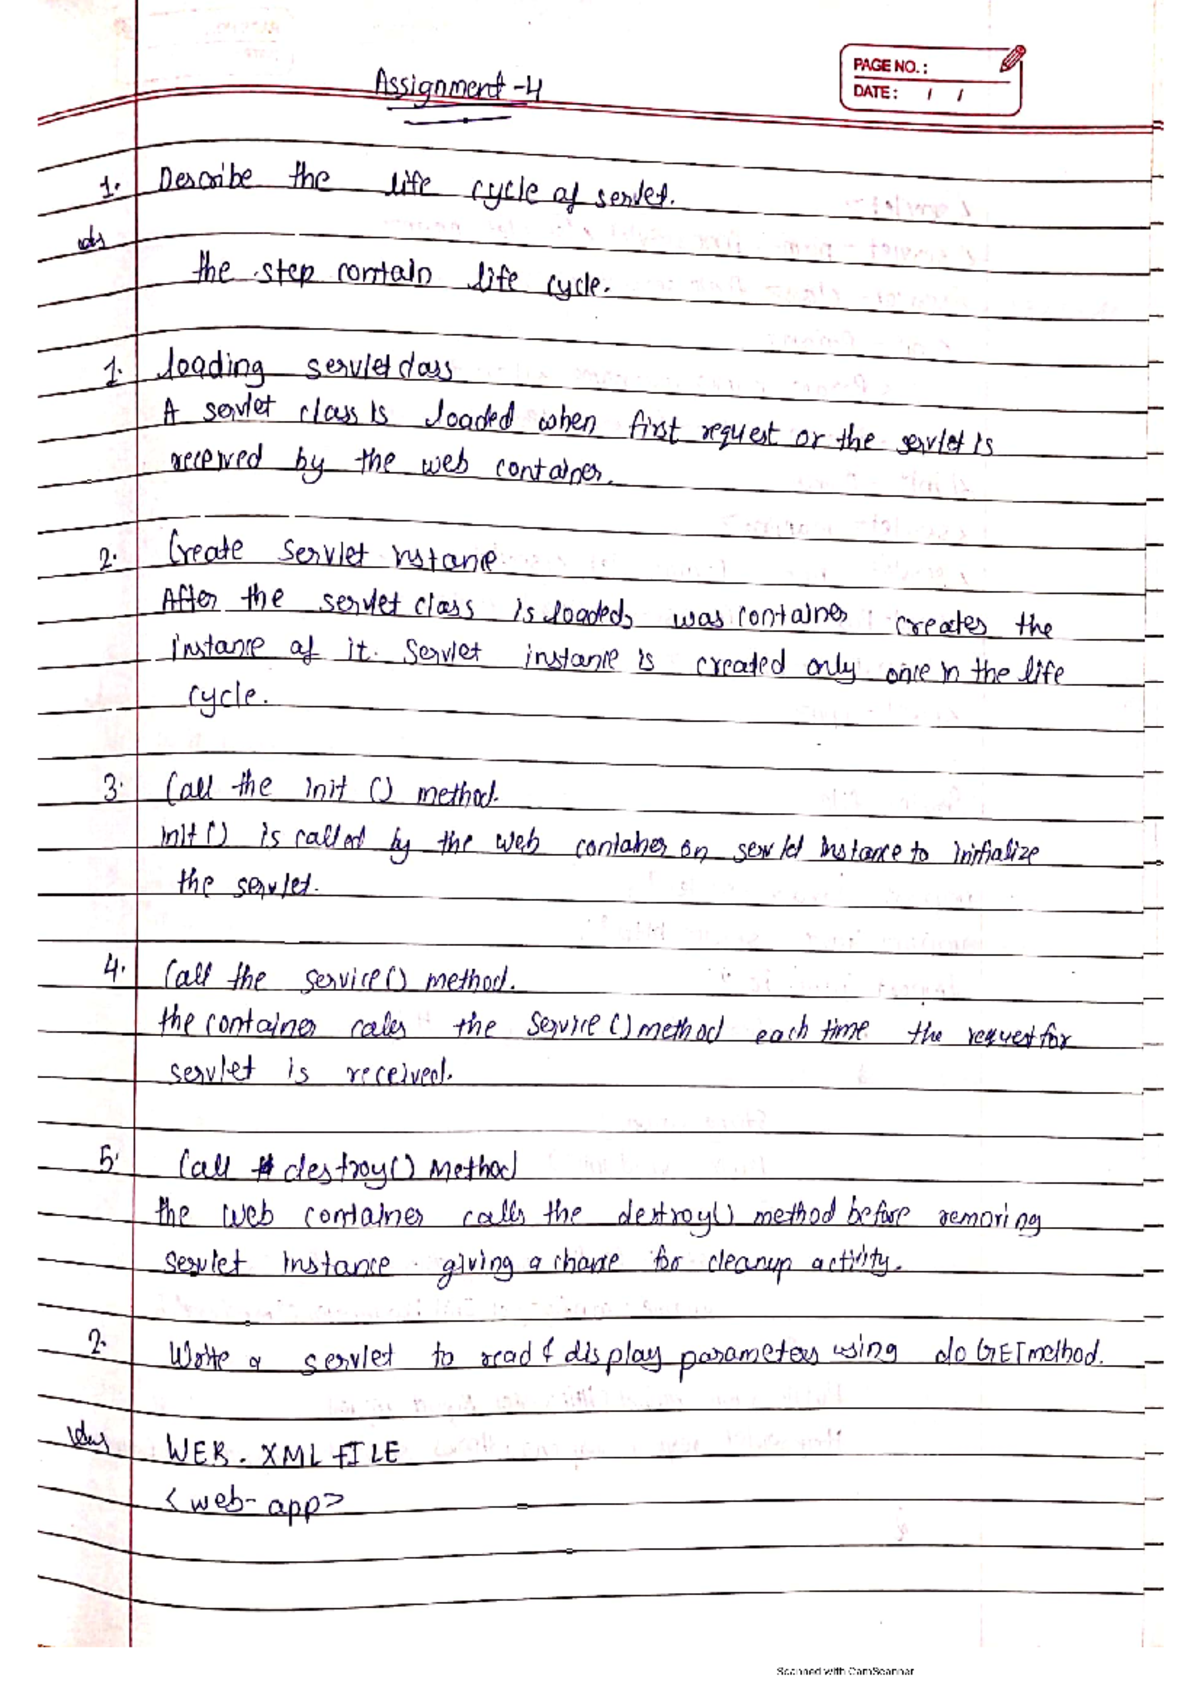 Assignment -4
PAGE NO.:
DATE: / /
1. Describe the life cycle of servlet.
Ans
the step contain life cycle.
1. loading servlet class
A servlet class is loaded when first request or the servlet is
received by the web container.
2. Create servlet instance
After the servlet class is loaded, was container creates the
instance of it. Servlet instance is created only once in the life
cycle.
3. Call the init () method.
init() is called by the web container on servlet instance to initialize
the servlet.
4. Call the service() method.
the container calls the service () method each time the request for
servlet is received.
5. Call destroy() Method
the web container calls the destroy() method before removing
servlet instance. giving a chance for cleanup activity.
2. Write a servlet to read & display parameters using do GET method.
Ans
WEB. XML FILE
<web-app>
Scanned with CamScanner